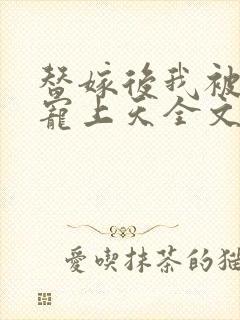 替嫁後我被
寵上天全文
愛喫抹茶的猫